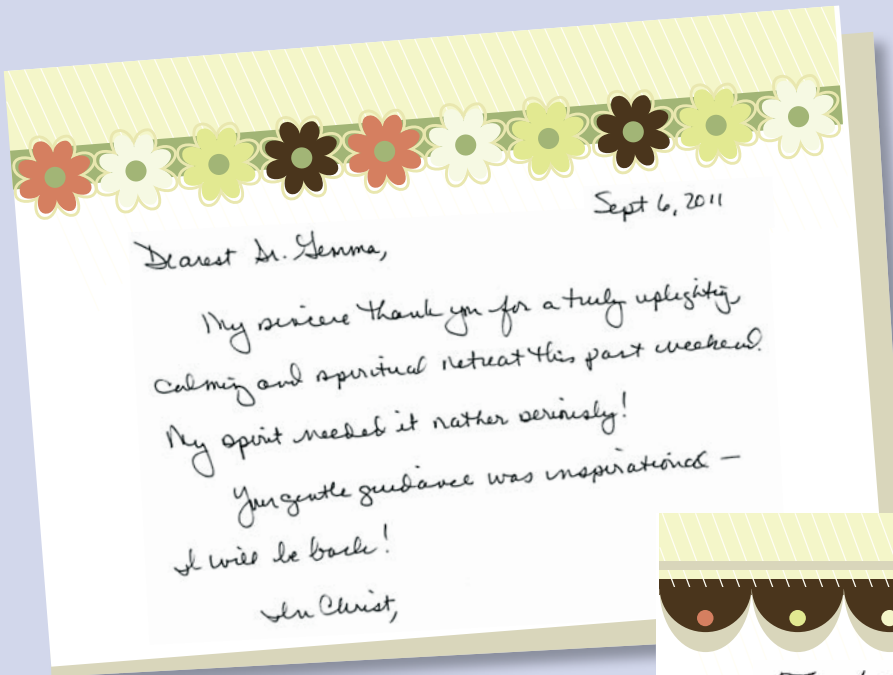 Sept 6, 2011
Dearest Sr. Gemma,
My sincere thank you for a truly uplighting,
calming and spiritual retreat this past weekend.
My spirit needed it rather seriously!
Your gentle guidance was inspirational –
I will be back!
In Christ,